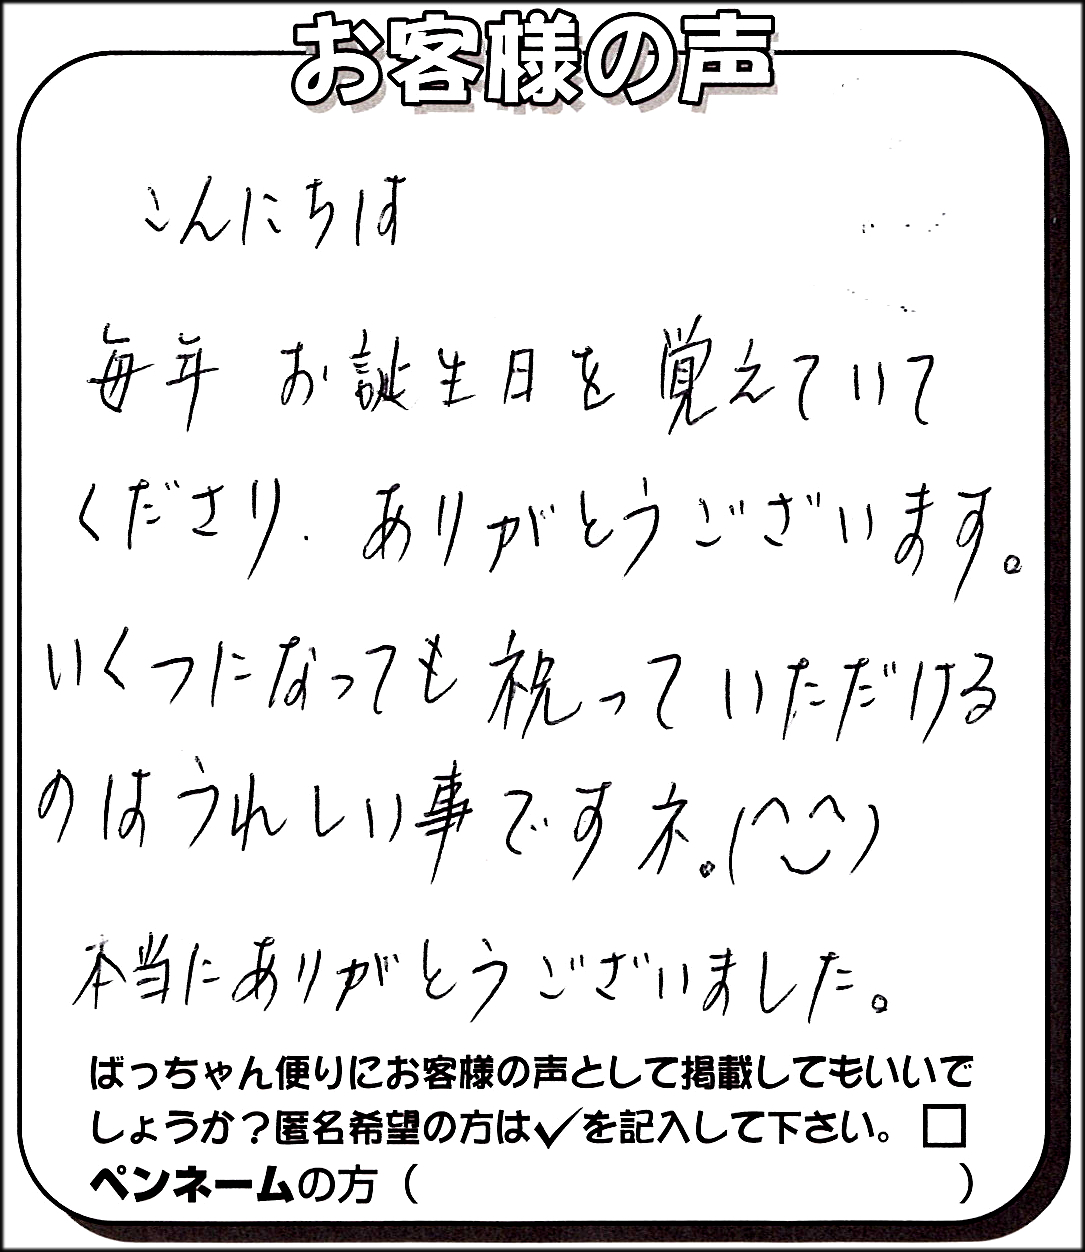 お客様の声
こんにちは
毎年 お誕生日を覚えていて
くださり、ありがとうございます。
いくつになっても祝っていただける
のはうれしい事ですネ。(^‿^)
本当にありがとうございました。
ばっちゃん便りにお客様の声として掲載してもいいで
しょうか？匿名希望の方は✓を記入して下さい。□
ペンネームの方（　　　　　　　　　　）